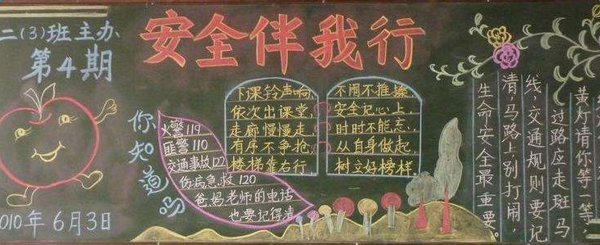 二(3)班主办
第4期
安全伴我行
010年6月3日
你知道吗
火警119
匪警110
交通事故122
伤病急救120
爸,妈,老师的电话
也要记得清
下课铃声响
依次出课堂,
走廊慢慢走
有序不争抢
楼梯靠右行
不闹不推搡
安全记心上,
时时不能忘,
从自身做起,
树立好榜样
黄灯请你等一等,
过路应走斑马
线,交通规则要记
清,马路上别打闹,
生命安全最重要。